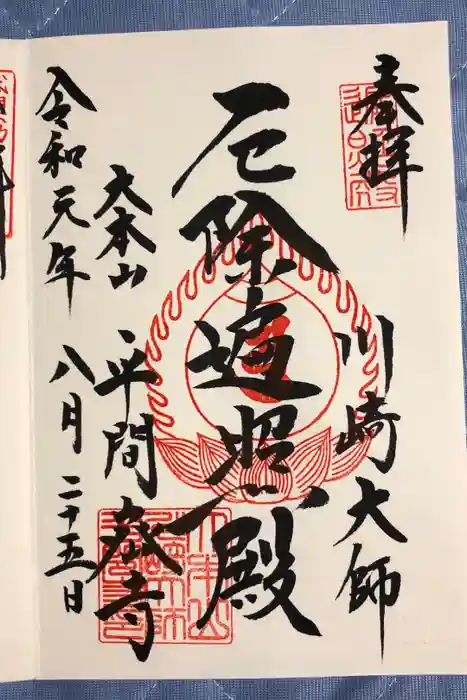 奉拝
川崎大師
厄除遍照殿
大本山
平間寺
令和元年
八月二十五日